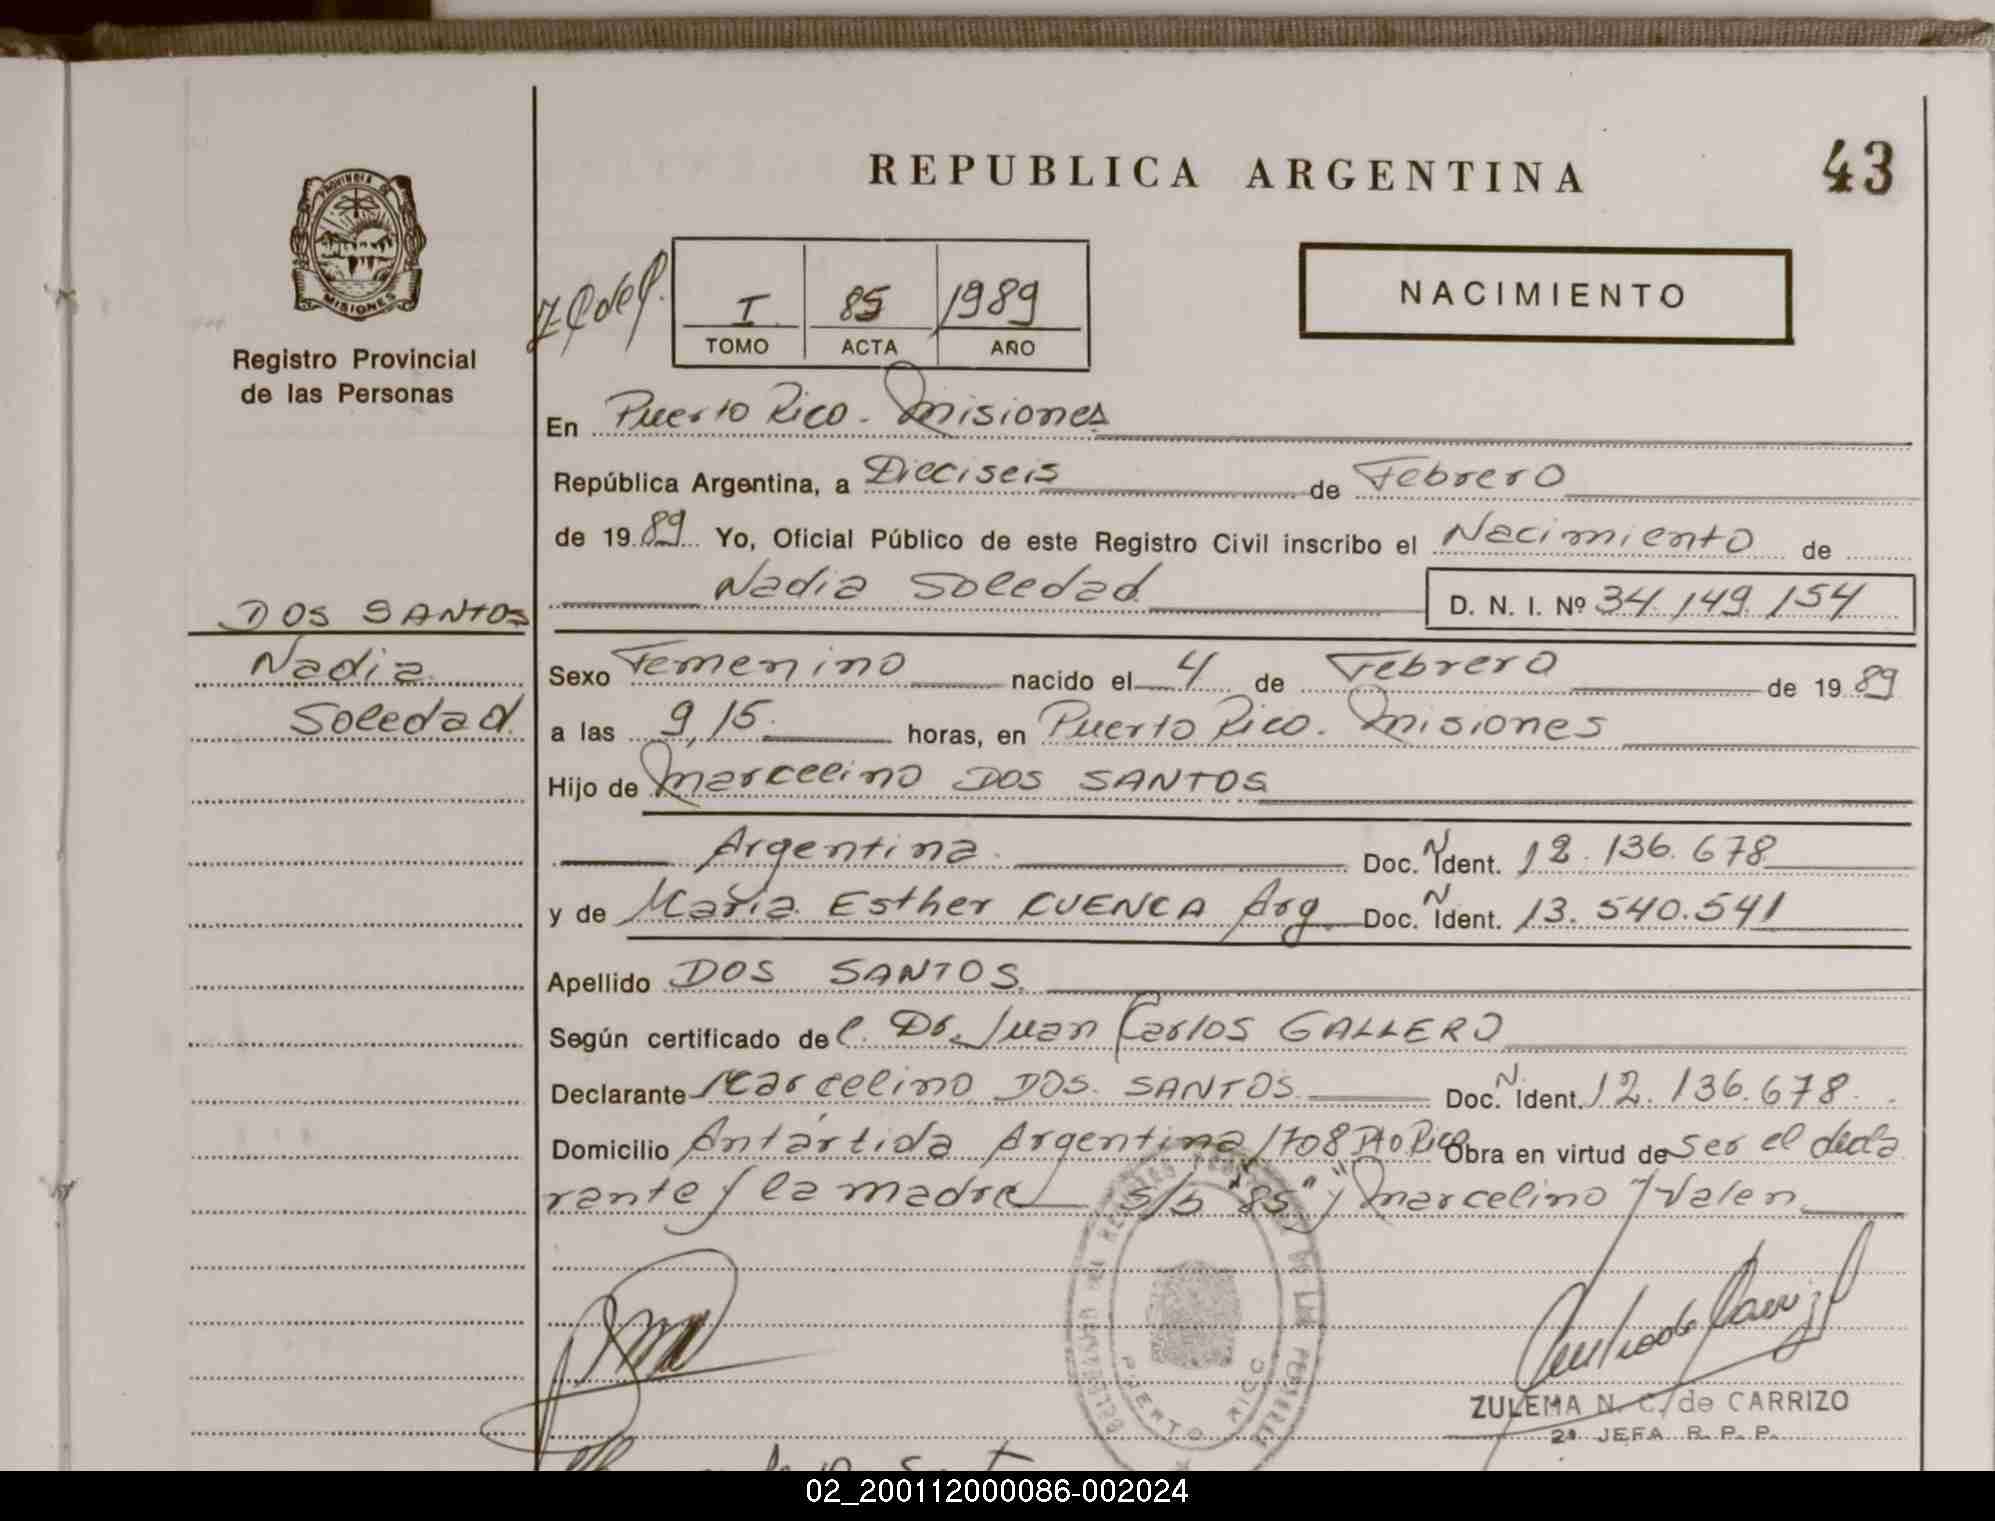 REPUBLICA ARGENTINA
43
PROVINCIA DE
MISIONES
Registro Provincial
de las Personas
I 85 1989
TOMO ACTA AÑO
NACIMIENTO
En Puerto Rico. Misiones
República Argentina, a Dieciseis de Febrero
de 1989 Yo, Oficial Público de este Registro Civil inscribo el Nacimiento de
Nadia Soledad D. N. I. Nº 34.149.154
DOS SANTOS
Nadia
Soledad
Sexo Femenino nacido el 4 de Febrero de 1989
a las 9,15 horas, en Puerto Rico. Misiones
Hijo de Marcelino DOS SANTOS
Argentina. Doc. N Ident. 12.136.678
y de María Esther CUENCA Arg. Doc. N Ident. 13.540.541
Apellido DOS SANTOS.
Según certificado del Dr. Juan Carlos GALLERO
Declarante Marcelino DOS SANTOS Doc. N Ident. 12.136.678.
Domicilio Antártida Argentina 1708 Pto Rico Obra en virtud de ser el decla
rante y la madre s/b "85" y "Marcelino" Valen.
DE LAS PERSONAS
PUERTO RICO
ZULEMA N. C. de CARRIZO
2ª JEFA R. P. P.
02_200112000086-002024